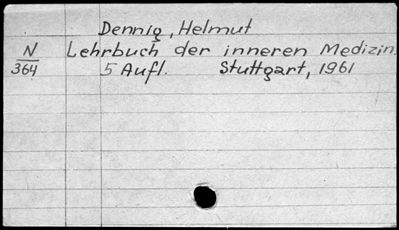 Dennig, Helmut
N Lehrbuch der inneren Medizin.
364 5 Aufl. Stuttgart, 1961